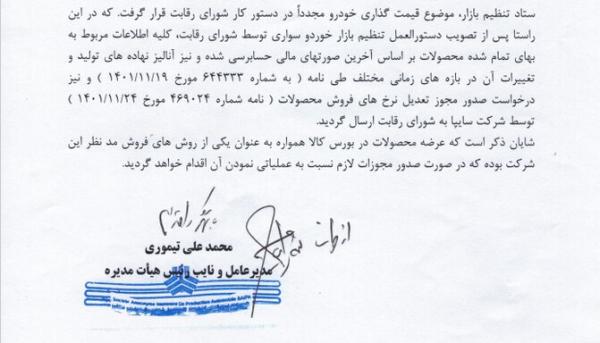 ستاد تنظیم بازار، موضوع قیمت گذاری خودرو مجدداً در دستور کار شورای رقابت قرار گرفت. که در این
راستا پس از تصویب دستورالعمل تنظیم بازار خوردو سواری توسط شورای رقابت، کلیه اطلاعات مربوط به
بهای تمام شده محصولات بر اساس آخرین صورتهای مالی حسابرسی شده و نیز آنالیز نهاده های تولید و
تغییرات آن در بازه های زمانی مختلف طی نامه ( به شماره ۶۴۴۳۳۳ مورخ ۱۴۰۱/۱۱/۱۹ ) و نیز
درخواست صدور مجوز تعدیل نرخ های فروش محصولات ( نامه شماره ۴۶۹۰۲۴ مورخ ۱۴۰۱/۱۱/۲۴ )
توسط شرکت سایپا به شورای رقابت ارسال گردید.
شایان ذکر است که عرضه محصولات در بورس کالا همواره به عنوان یکی از روش های فروش مد نظر این
شرکت بوده که در صورت صدور مجوزات لازم نسبت به عملیاتی نمودن آن اقدام خواهد گردید.
از طرف
محمد علی تیموری
مدیرعامل و نایب رئیس هیأت مدیره
Societe Anonyme Iranienne De Production Automobile SAIPA